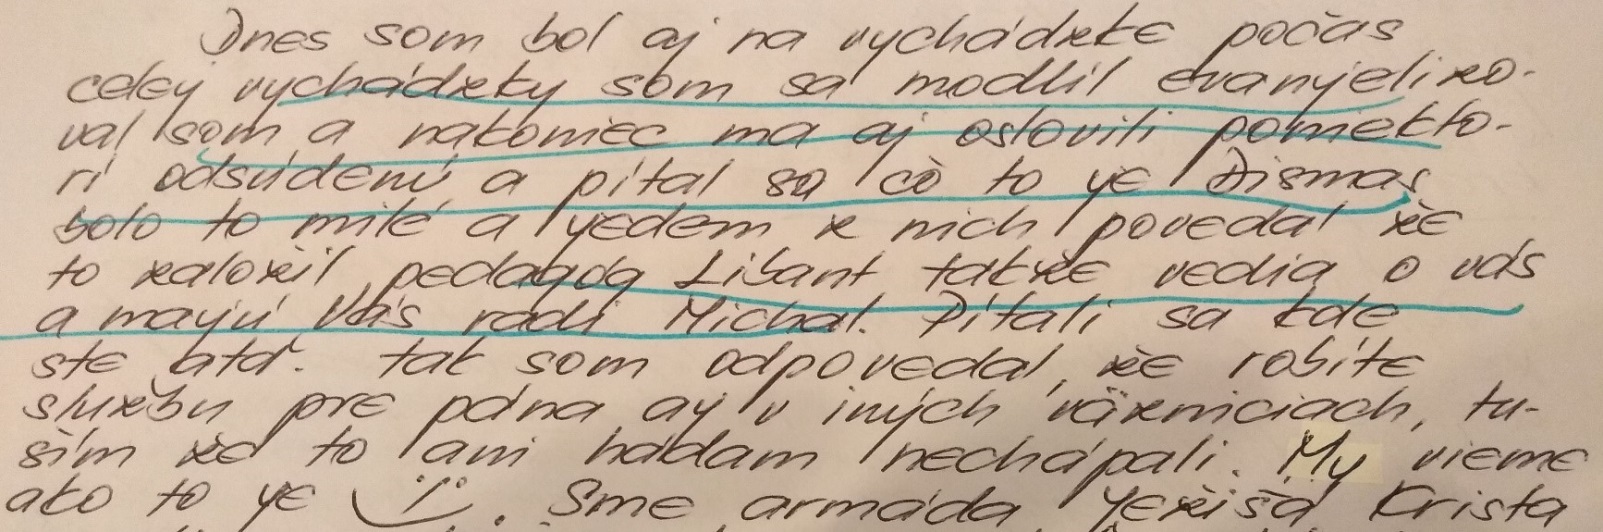 Dnes som bol aj na vychádzke počas
celej vychádzky som sa modlil evanjelizo-
val som a nakoniec ma aj oslovili poniekto-
rí odsúdení a pítal sa čo to je Dismas
bolo to milé a jedem z nich povedal že
to založil pedagóg Libant takže vedia o vás
a majú Vás radi Michal. Pítali sa kde
ste atď. tak som odpovedal, že robíte
službu pre pána aj v iných väzniciach, tu-
ším že to ani hádam nechápali. My vieme
ako to je. Sme armáda Ježiša Krista